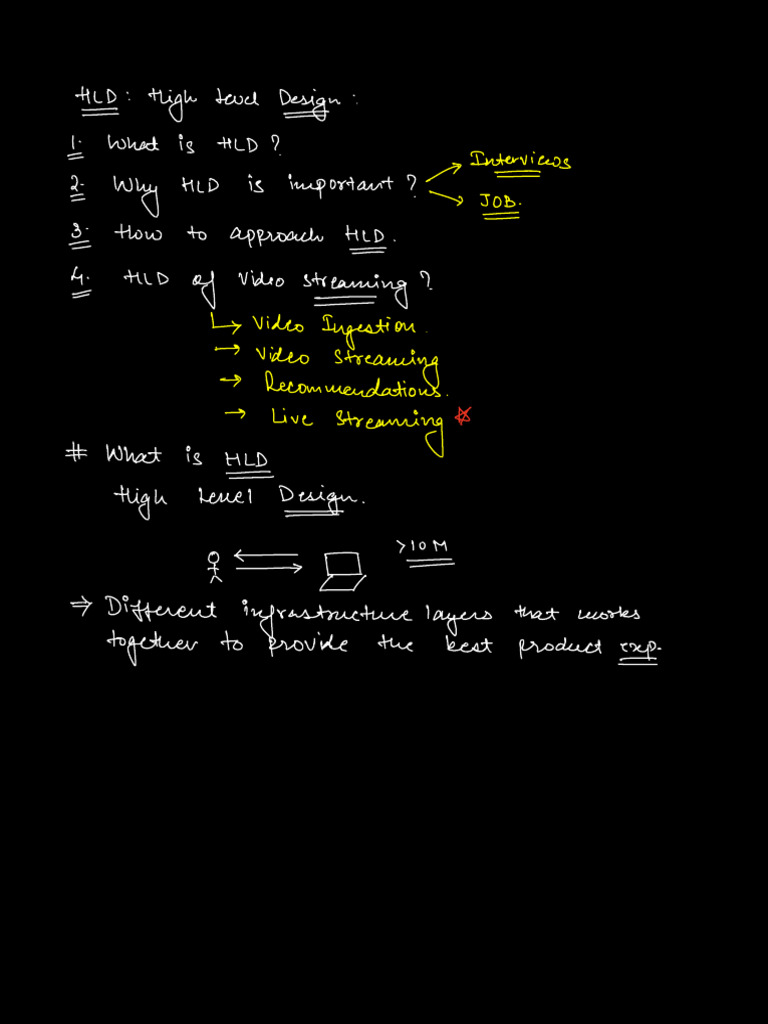 HLD : High Level Design :
1. What is HLD ?
2. Why HLD is important ?
Interviews
JOB.
3. How to approach HLD.
4. HLD of Video Streaming ?
Video Ingestion.
Video Streaming
Recommendations.
Live Streaming
# What is HLD
High Level Design.
>10 M
⇒ Different infrastructure layers that works
together to provide the best product exp.